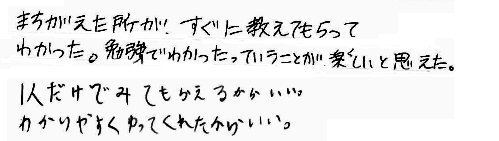 まちがえた所が、すぐに教えてもらって
わかった。勉強でわかったっていうことが楽しいと思えた。
1人だけでみてもらえるからいい。
わかりやすくゆってくれたからいい。